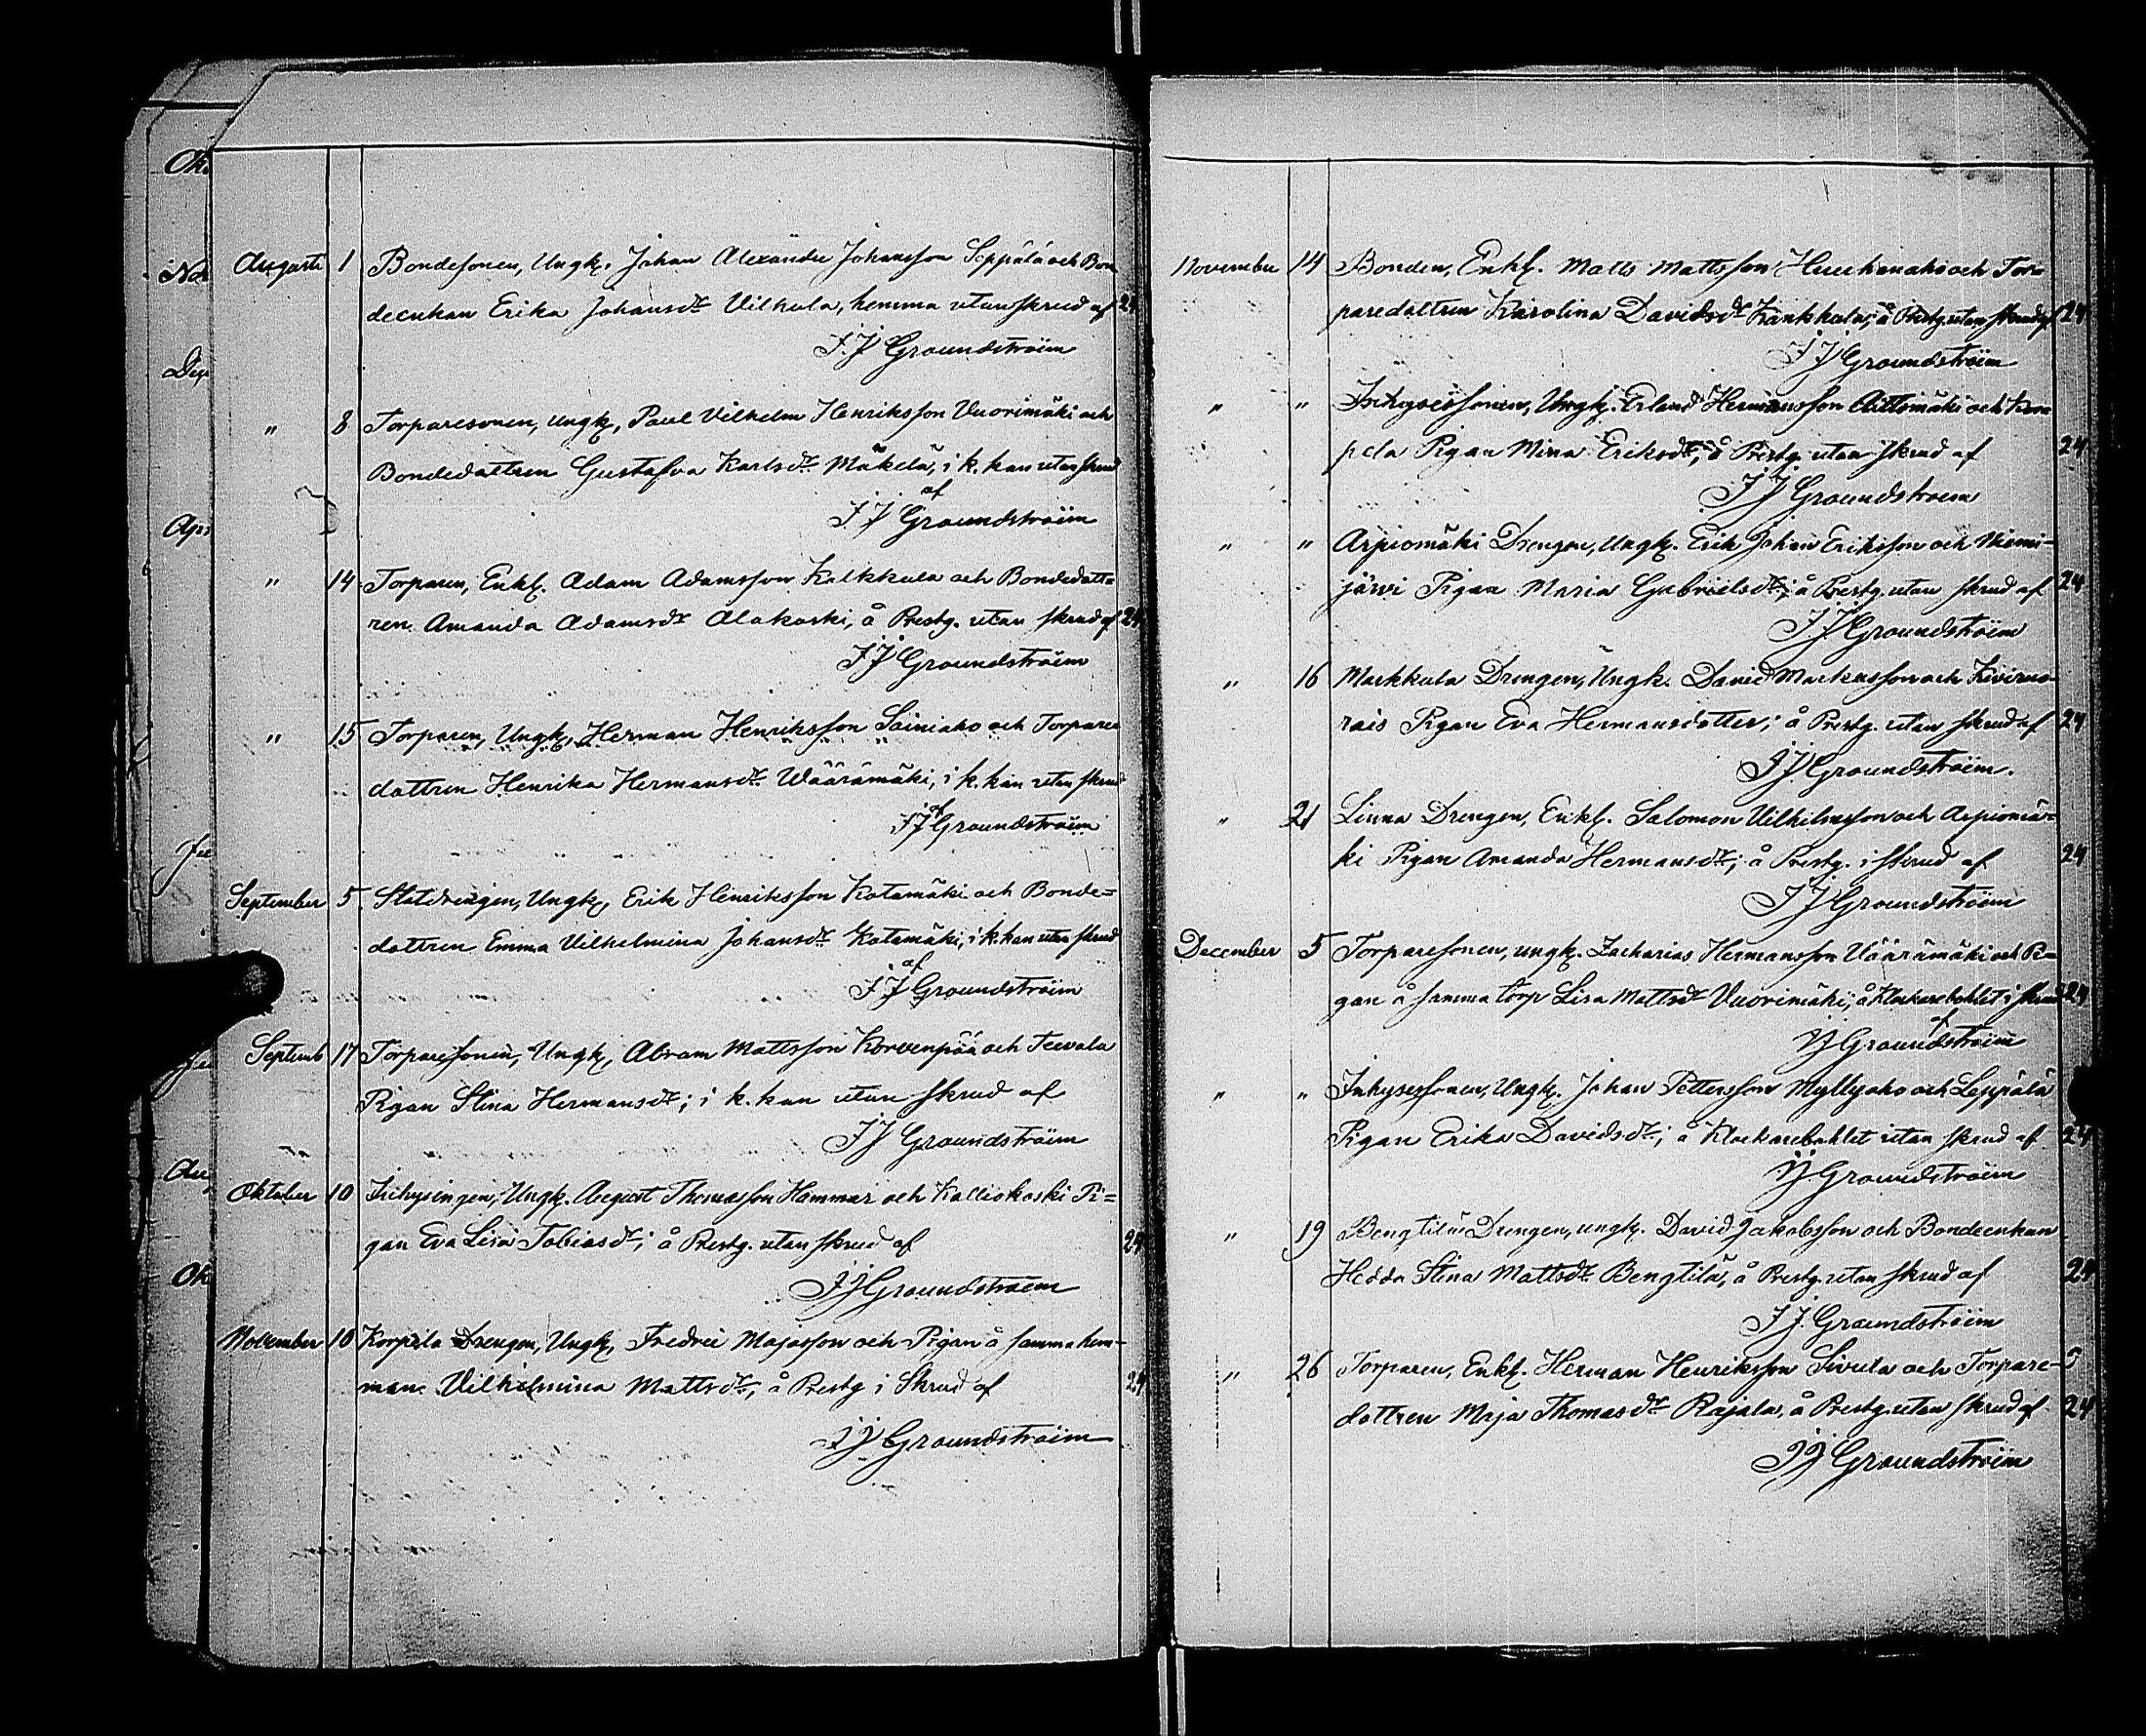 Augusti 1 Bondesonen, Ungk. Johan Alexander Johansson Seppälä och Bon
deenkan Erika Johansdr Vilkula, hemma utan skrud af 24
J. J. Groundstroëm
" 8 Torparesonen, Ungk, Paul Vilhelm Henriksson Vuorimäki och
Bondedottren Gustafva Karlsdr Mäkelä, i k. kan utan skrud
af
J J Groundstroëm
" 14 Torparen, Enkl. Adam Adamsson Kalkkula och Bondedott=
ren Amanda Adamsdr Alakoski, å Prestg. utan skrud af 24
J J Groundstroëm
" 15 Torparen, Ungk, Herman Henriksson Sainiaho och Torpare
dottren Henrika Hermansdr Wäärämäki, i k. kan utan skrud
af
J J Groundstroëm
September 5 Statdrengen, Ungk, Erik Henriksson Katamäki och Bonde=
dottren Emma Vilhelmina Johansdr Katamäki, i k. kan utan skrud
af
J J Groundstroëm
Septemb 17 Torparesonen, Ungk, Abram Mattsson Korvenpää och Teevala
Pigan Stina Hermansdr; i k. kan utan skrud af
J J Groundstroëm
Oktober 10 Inhysingen, Ungk. August Thomasson Hammar och Kalliokoski Pi=
gan Eva Lisa Tobiasdr; å Prestg. utan skrud af 24
J J Groundstroëm
November 10 Korpela Drengen, Ungk, Fredric Majasson och Pigan å samma hem-
man Vilhelmina Mattsdr, å Prestg i Skrud af 24
J J Groundstroëm
November 14 Bonden, Enkl. Matts Mattsson Huuhanaho och Tor=
paredottren Karolina Davidsdr Kankkula; å Prestg utan skrud af 24
J J Groundstroëm
" " Inhysessonen, Ungk. Erland Hermansson Aittomäki och Kor
pela Pigan Mina Eriksdr; å Prestg. utan skrud af 24
J J Groundstroëm
" " Arpiomäki Drengen, Ungk. Erik Johan Eriksson och Niemi-
järvi Pigan Maria Gabrielsdr; å Prestg. utan skrud af 24
J J Groundstroëm
" 16 Markkula Drengen, Ungk. David Markusson och Kivirua-
rais Pigan Eva Hermansdotter; å Prestg. utan skrud af 24
J J Groundstroëm.
" 21 Linna Drengen, Enkl. Salomon Vilhelmsson och Arpiomä=
ki Pigan Amanda Hermansdr; å Prestg. i skrud af 24
J J Groundstroëm
December 5 Torparesonen, ungk. Zacharias Hermansson Väärämäki och Pi=
gan å samma torp Lisa Mattsdr Vuorimäki; å Klockarebohlet i skrud 24
af
J J Groundstroëm
" " Inhysessonen, Ungk. Johan Pettersson Myllyaho och Leppälä
Pigan Erika Davidsdr; å Klockarebohlet utan skrud af 24
J J Groundstroëm
" 19 Bengtilä Drengen, ungk. David Jakobsson och Bondeenkan
Hedda Stina Mattsdr Bengtilä, å Prestg utan skrud af 24
J J. Groundstroëm
" 26 Torparen, Enkl. Herman Henriksson Sivula och Torpare-
dottren Maja Thomasdr Rajala, å Prestg. utan skrud af 24
J J Groundstroëm